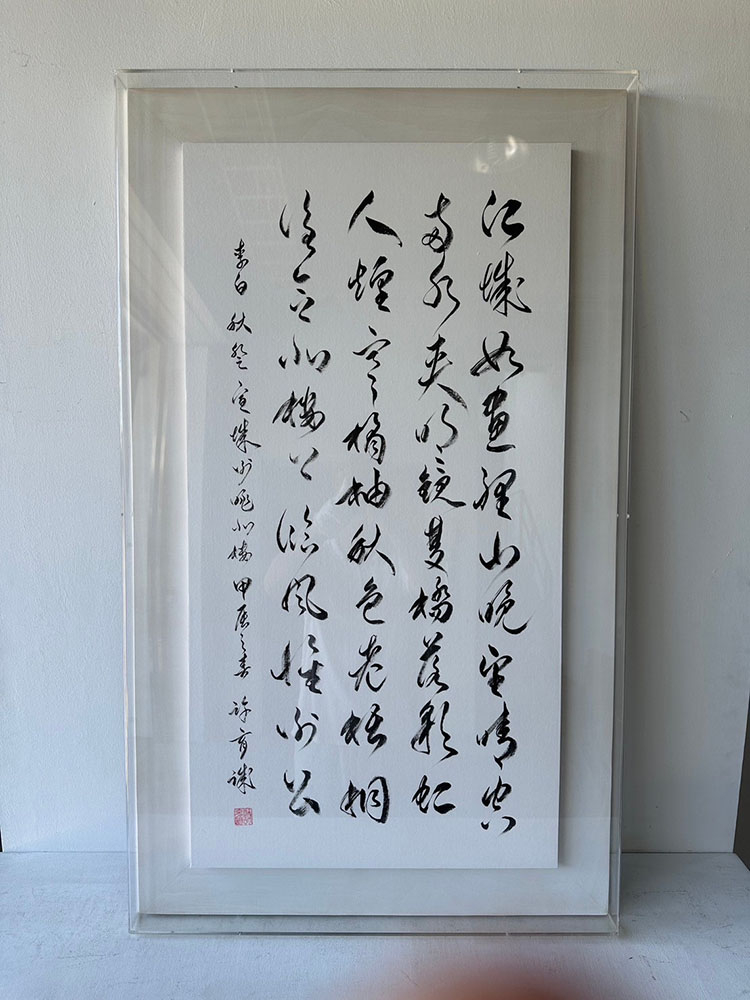 江城如畫裡山晚望晴空
兩水夾明鏡雙橋落彩虹
人煙寒橘柚秋色老梧桐
誰念北樓上臨風懷謝公
李白 秋登宣城謝朓北樓 甲辰之春 許育誠